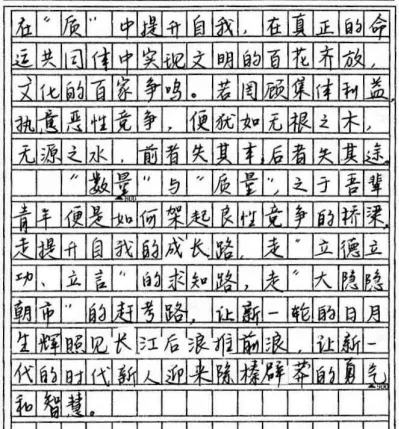 在“质”中提升自我，在真正的命
运共同体中实现文明的百花齐放，
文化的百家争鸣。若罔顾集体利益，
执意恶性竞争，便犹如无根之木，
无源之水，前者失其本，后者失其途。
“数量”与“质量”，之于吾辈
青年便是如何架起良性竞争的桥梁。
走提升自我的成长路，走“立德立
功、立言”的求知路，走“大隐隐
朝市”的赶考路，让新一轮的日月
生辉照见长江后浪推前浪，让新一
代的时代新人迎来除榛辟莽的勇气
和智慧。